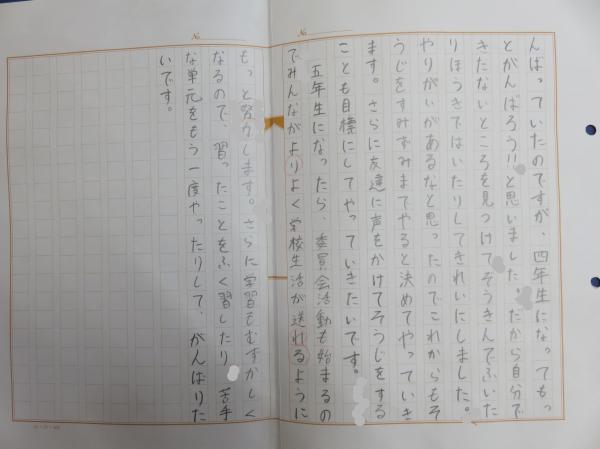 んばっていたのですが、四年生になってもっ
とがんばろう!!と思いました。だから自分で
きたないところを見つけてぞうきんでふいた
りほうきではいたりしてきれいにしました。
やりがいがあるなと思ったのでこれからもそ
うじをすみずみまでやると決めてやっていき
ます。さらに友達に声をかけてそうじをする
ことも目標にしてやっていきたいです。
五年生になったら、委員会活動も始まるの
でみんながよりよく学校生活が送れるように
もっと努力します。さらに学習もむずかしく
なるので、習ったことをふく習したり、苦手
な単元をもう一度やったりして、がんばりた
いです。
No.
No.